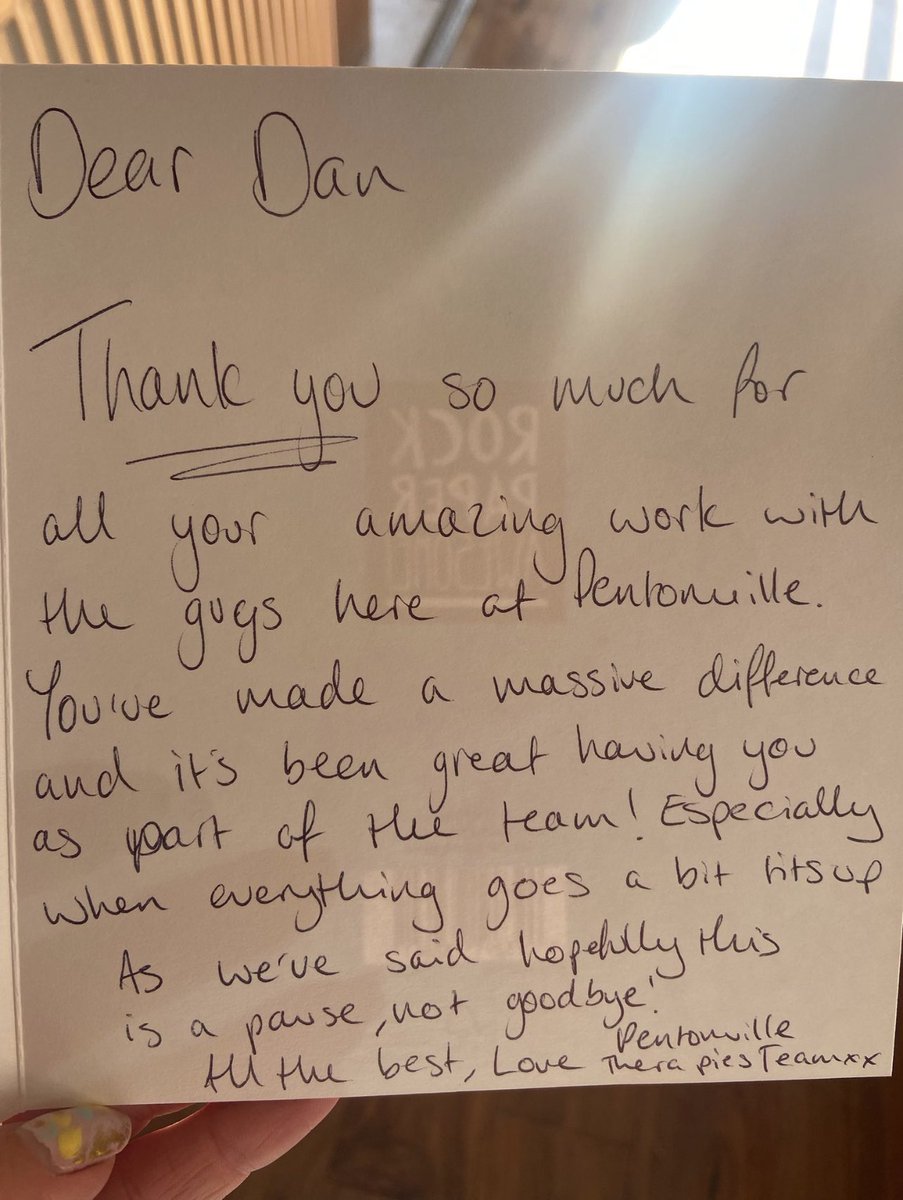 Dear Dan
Thank you so much for
all your amazing work with
the guys here at Pentonville.
You've made a massive difference
and it's been great having you
as part of the team! Especially
when everything goes a bit titsup
As we've said hopefully this
is a pause, not goodbye!
All the best, Love Pentonville
Therapies Team xx
ROCK
PAPER